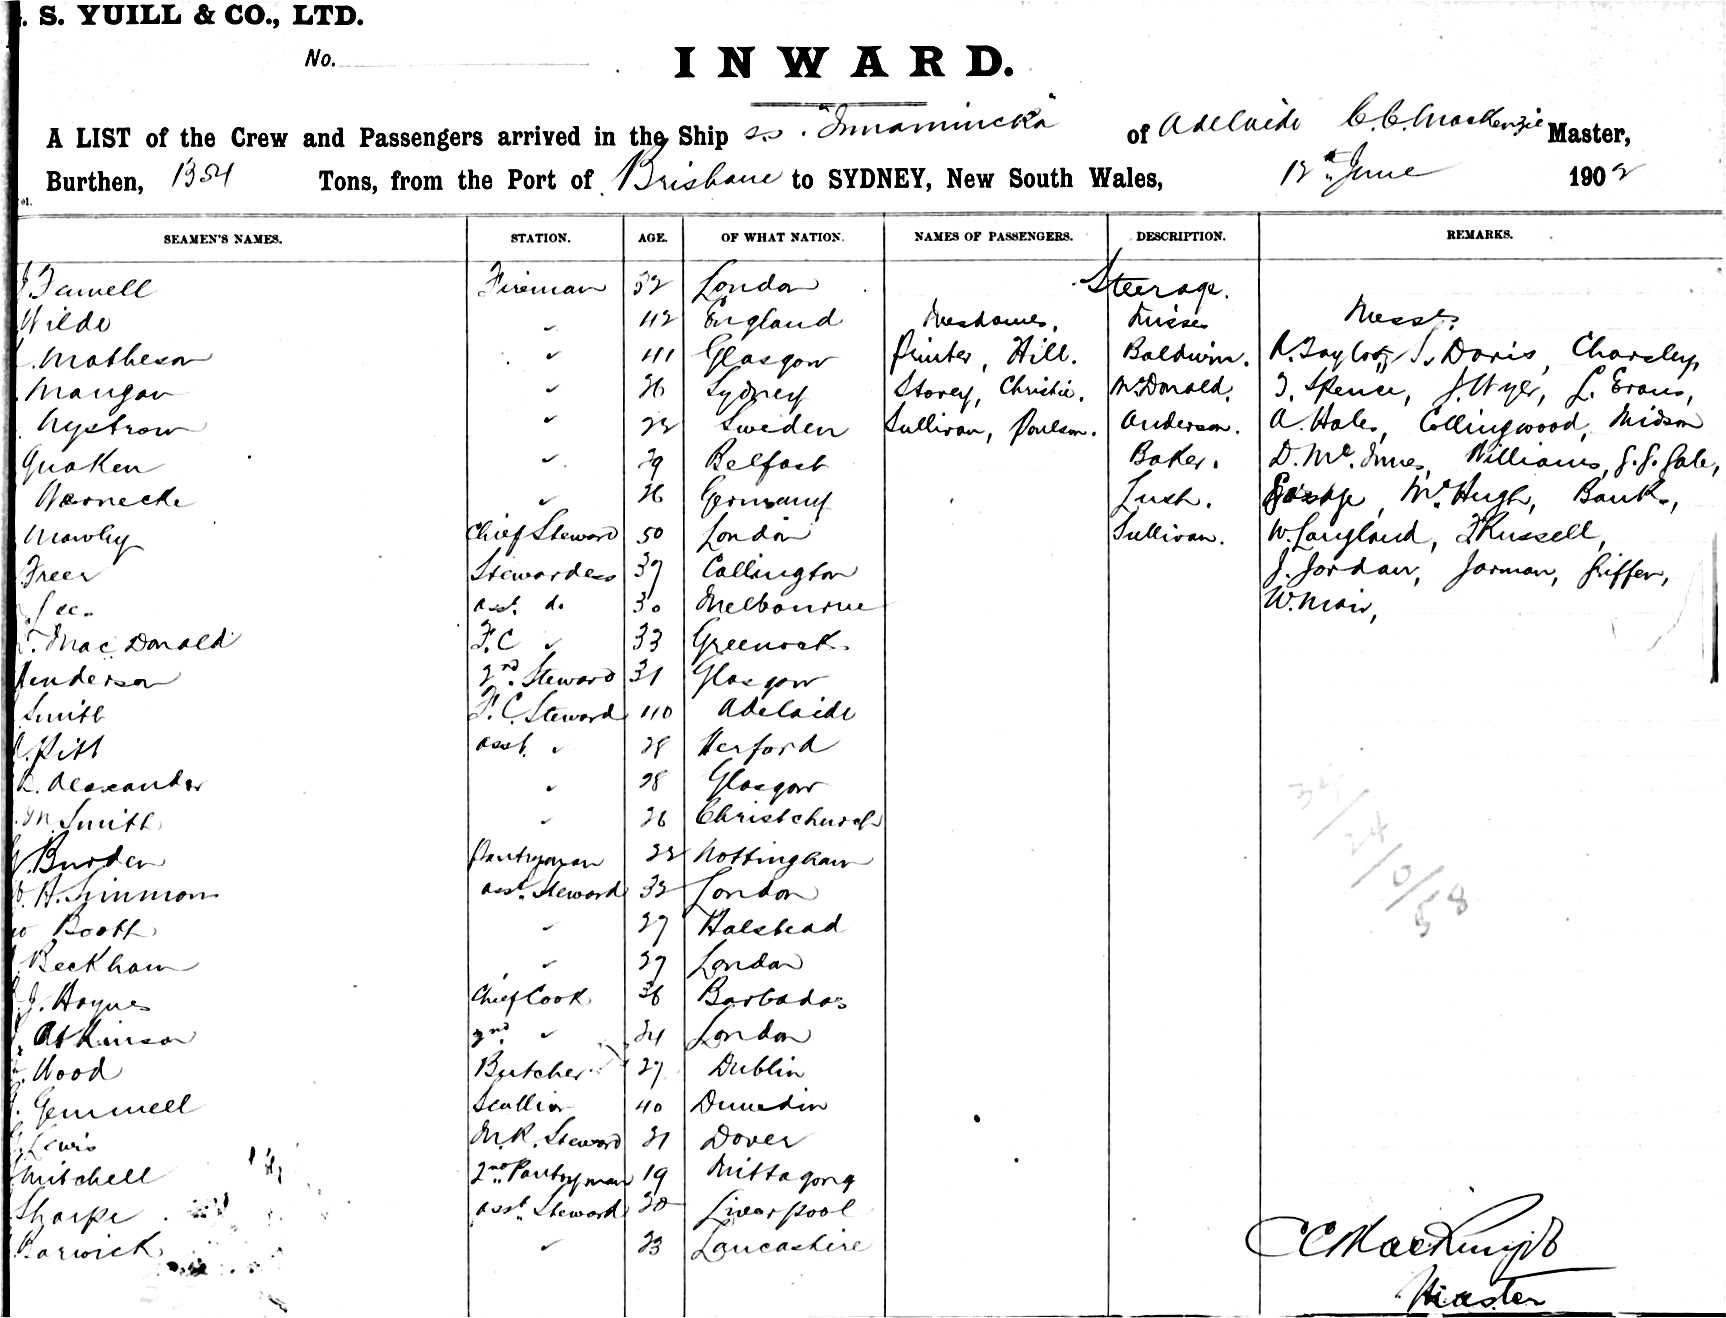 . S. YUILL & CO., LTD.
No.
INWARD.
A LIST of the Crew and Passengers arrived in the Ship s.s. "Innamincka" of Adelaide C. C. Mackenzie Master,
Burthen, Tons, from the Port of Brisbane to SYDNEY, New South Wales, 12th June 1902
SEAMEN'S NAMES. STATION. AGE. OF WHAT NATION. NAMES OF PASSENGERS. DESCRIPTION. REMARKS.
Fireman 32 London Steerage.
Wilde " 42 England Mesdames, Misses Messrs
Matheson " 41 Glasgow Hill. Baldwin. Taylor, Davis,
Mangan " 26 Sydney Storey, Christie. McDonald. Spence, J. Wyer, L. Evans,
Nystrom " Sweden Sullivan, Poulson. Anderson. A. Hales, Collingwood, Midson
" 29 Belfast Baker. D. McInnes, Williams, Gale,
Wernecke " 26 Germany Lush. McHugh, Banks,
Mawby Chief Steward 50 London Sullivan. W. Langland, Russell,
Freer Stewardess 37 Callington J. Jordan, Jarman, Giffen,
Lee asst. do. 30 Melbourne W. Moir,
MacDonald F.C " 33 Greenock
Henderson 2nd Steward 31 Glasgow
Smith F.C. Steward 40 Adelaide
Pitt asst. " 28 Herford
Alexander " 28 Glasgow
M. Smith " 26 Christchurch
Burden Pantryman 22 Nottingham
H. Simmons asst. Steward 32 London
Booth " 27 Halstead
Beckham " 27 London
J. Haynes Chief Cook 36 Barbados
Atkinson 2nd " 24 London
Wood Butcher 27 Dublin
Gemmell Scullion 40 Dunedin
Lewis M.R. Steward 21 Dover
Mitchell 2nd Pantryman 19 Mittagong
Sharpe asst. Steward 20 Liverpool
Barwick " 23 Lancashire
Master